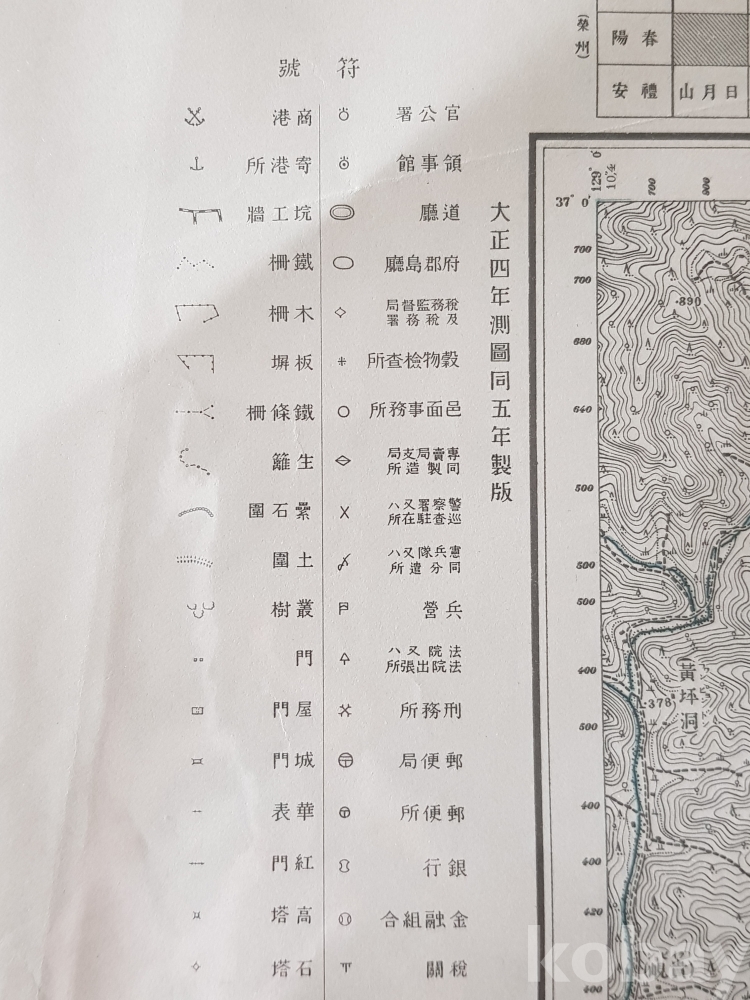 (榮州)
春陽
禮安
日月山
符號
官公署
領事館
道廳
府郡島廳
稅務監督局
及稅務署
穀物檢查所
邑面事務所
專賣局支局
同製造所
警察署又ハ
巡查駐在所
憲兵隊又ハ
同分遣所
兵營
法院又ハ
法院出張所
刑務所
郵便局
郵便所
銀行
金融組合
稅關
商港
寄港所
垸工牆
鐵柵
木柵
板塀
鐵條柵
生籬
纍石圍
土圍
叢樹
門
屋門
城門
華表
紅門
高塔
石塔
大正四年測圖同五年製版
37° 0′
129° 0′
700
900
700
700
·890
680
640
500
500
500
400
黃坪洞
·378
500
400
400
420
400
kobay